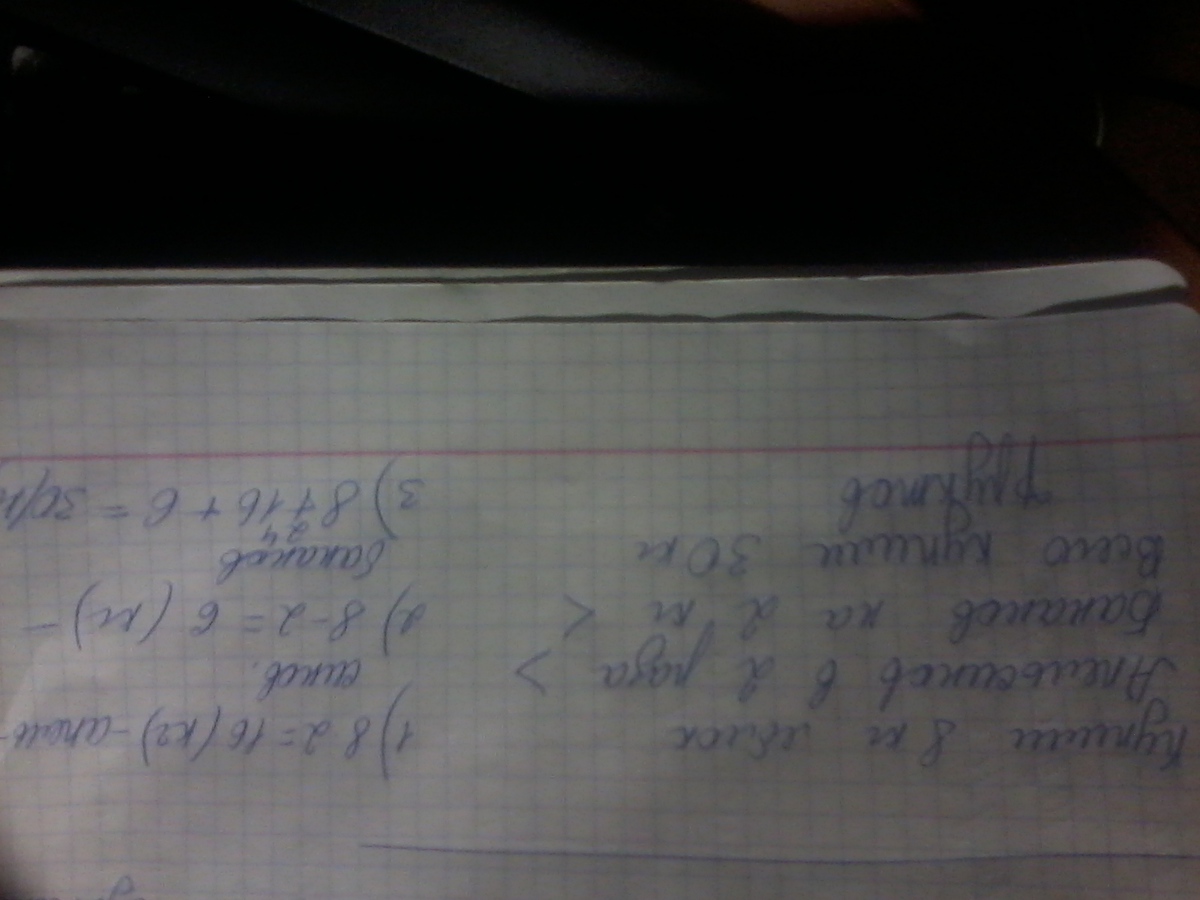 Купили 8 кг яблок
Апельсинов в 2 раза >
Бананов на 2 кг <
Всего купили 30 кг
фруктов
1) 8 2 = 16 (кг) - апель-
синов.
2) 8 - 2 = 6 (кг) -
бананов
3) 8 + 16 + 6 = 30 (к
24